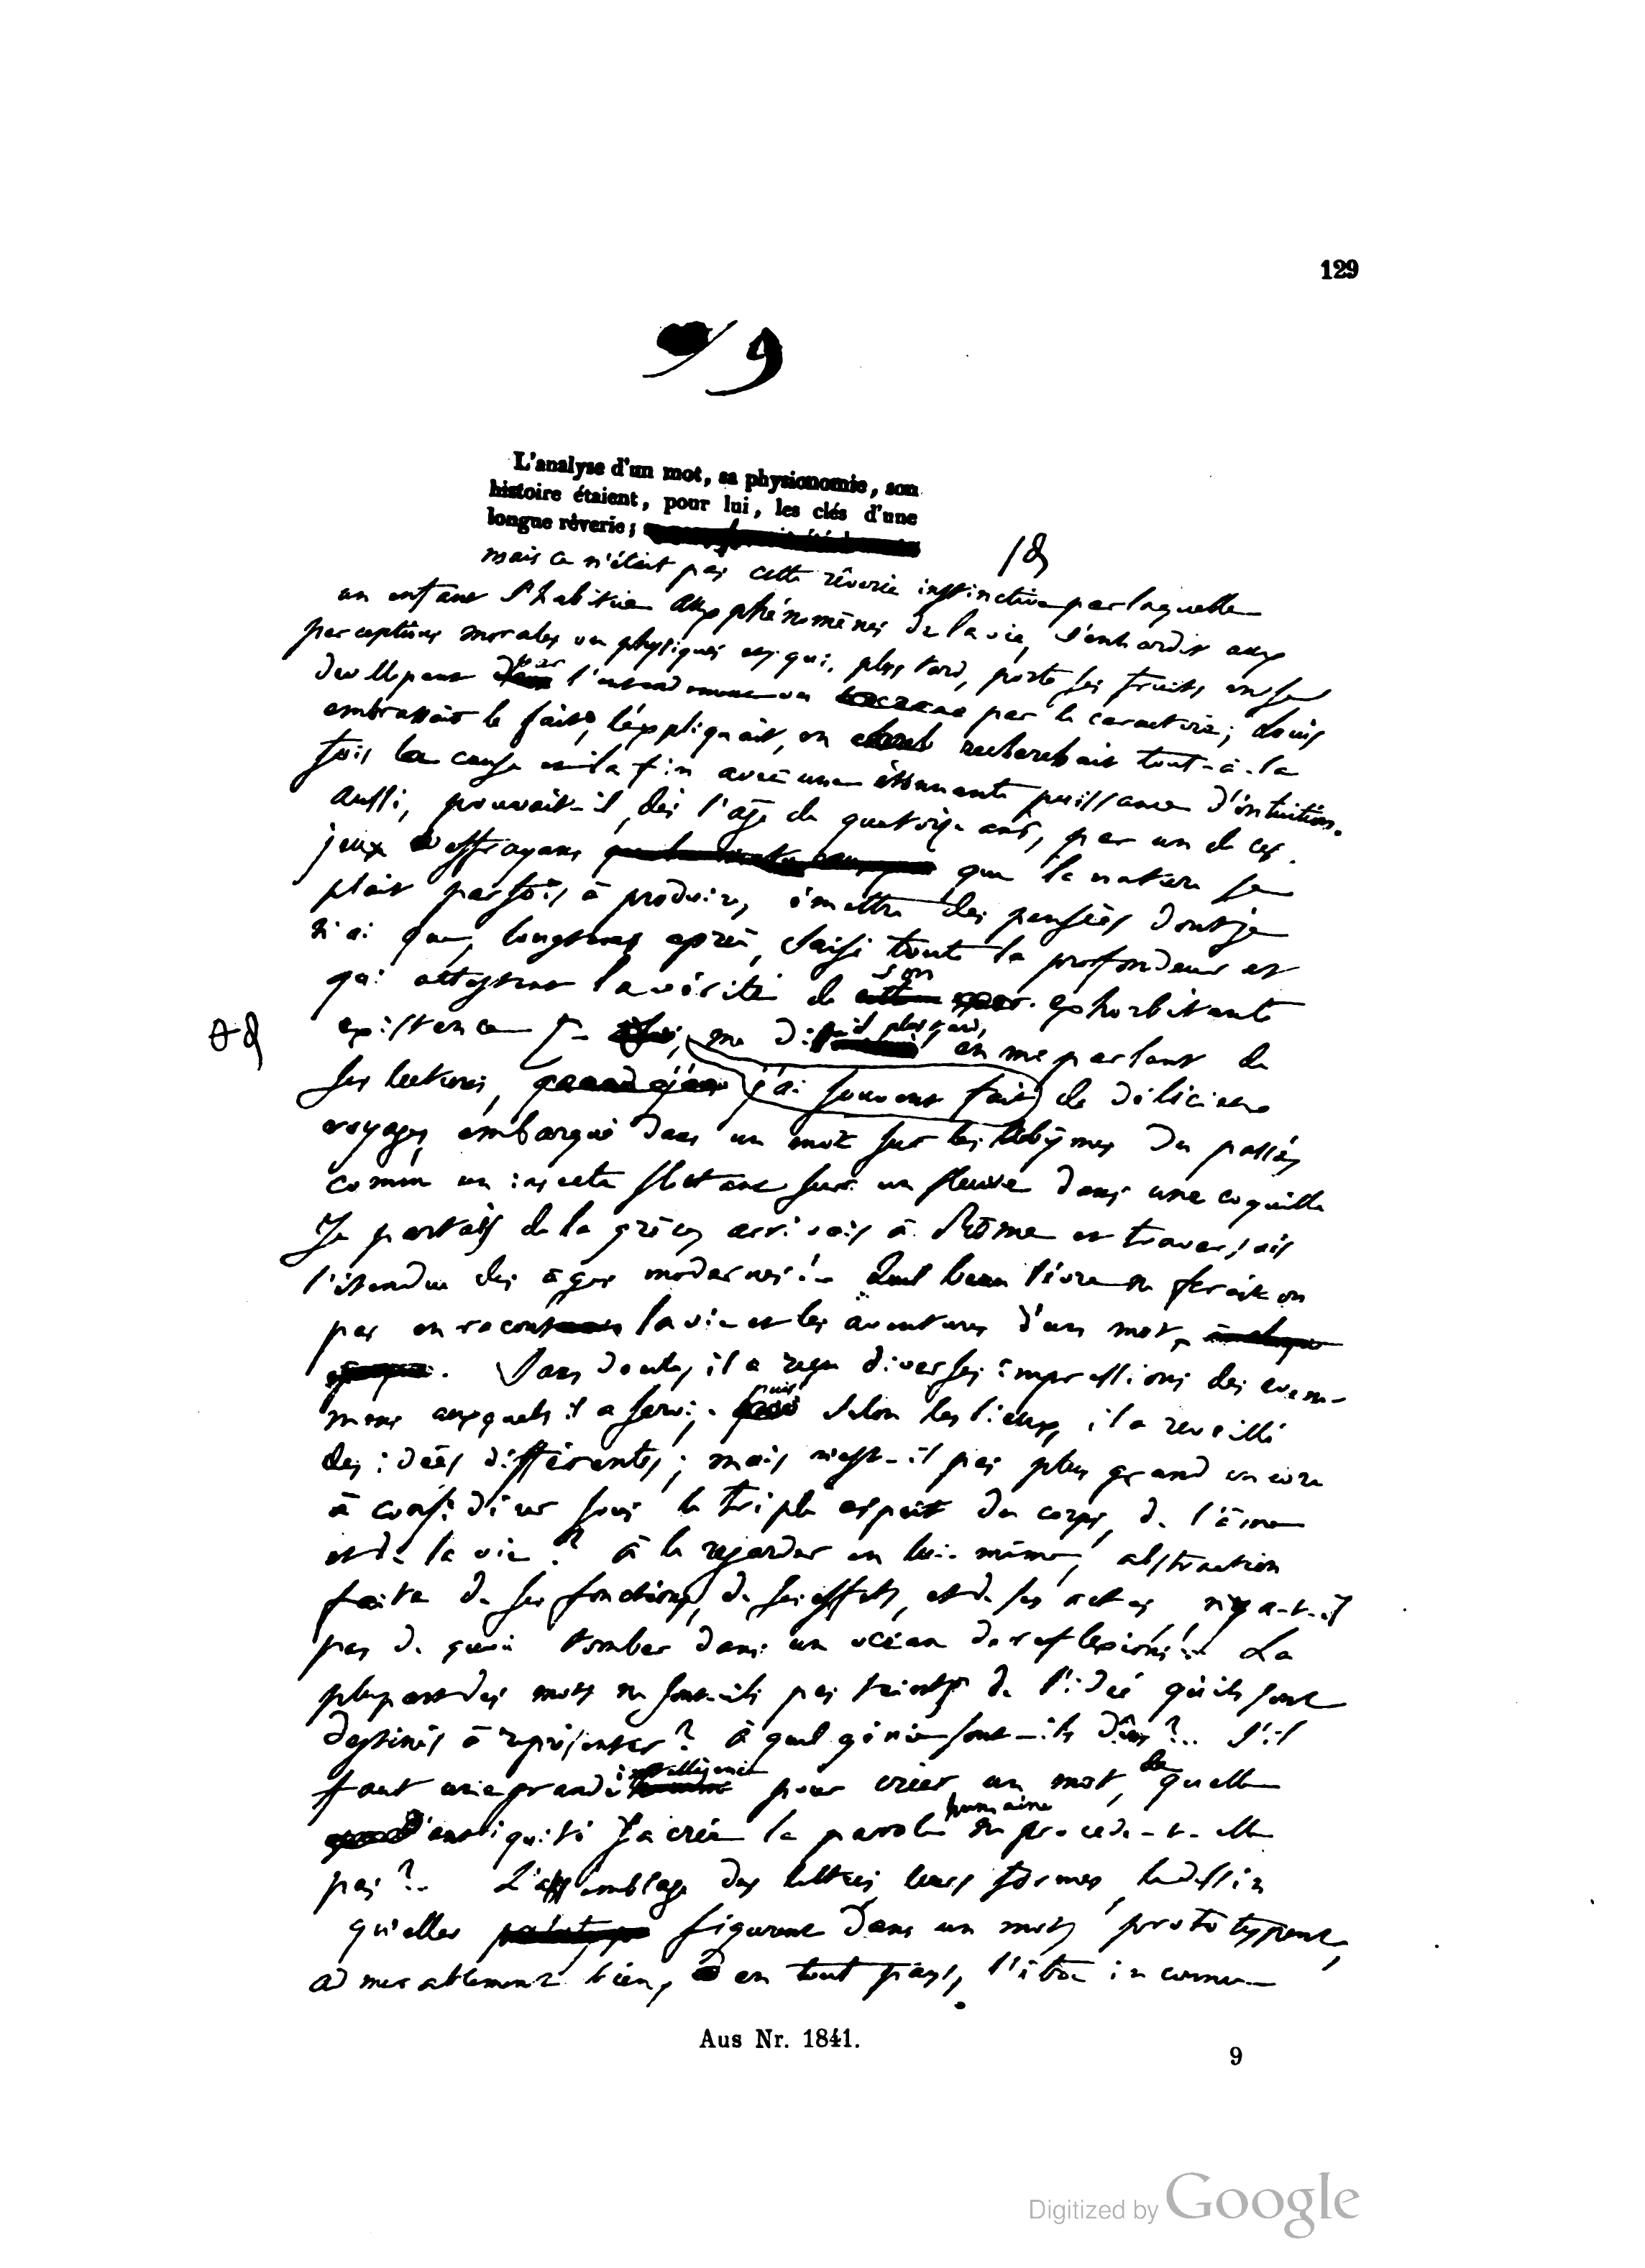 129
9
L'analyse d'un mot, sa physionomie, son
histoire étaient, pour lui, les clés d'une
longue rêverie;
mais ce n'était pas cette rêverie instinctive par laquelle
un enfant s'habitue aux phénomènes de la vie, s'enhardit aux
perceptions morales ou physiques et qui, plus tard, porte ses fruits en se
par l'entendement ou par le caractère; Louis
embrassait le fait, l'expliquait, en recherchait tout-à-la
fois la cause et la fin avec une étonnante puissance d'intuition.
Aussi, pouvait-il, dès l'âge de quatorze ans, par un de ces
jeux effrayans que la nature se
plait parfois à produire, émettre des pensées dont je
n'ai que, longtems après, saisi toute la profondeur et
qui attestent la vérité de son exhorbitante
existence me dit-il plus tard, en me parlant de
ses lectures, j'ai souvent fait de délicieux
voyages, embarqué dans un mot sur les abymes du passé,
comme un insecte flottant sur un fleuve dans une coquille
Je partais de la grèce, arrivais à Rôme et traversais
l'étendue des âges modernes! Quel beau livre ne ferait on
pas en racontant la vie et les aventures d'un mot.
Sans doute, il a reçu diverses impressions des evene-
mens auxquels il a servi; puis selon les lieux, il a reveillé
des idées différentes; mais n'est-il pas plus grand encore
à considérer sous le triple aspect du corps, de l'âme
et de la vie? à le regarder en lui-même, abstraction
faite de ses fonctions, de ses effets, et de ses actes, n'y a-t-il
pas de quoi tomber dans un océan de reflexions!.. La
plupart des mots ne sont-ils pas teints de l'idée qu'ils sont
destinés à représenter? à quel génie sont-ils dûs?.. S'il
faut une grande intelligence pour créer un mot, de quelle
antiquité la parole humaine ne procède-t-elle
pas?.. L'assemblage des lettres, leurs formes, le dessin
qu'elles figurent dans un mot, prototypent,
admirablement bien, en tout pays, l'être inconnu
Aus Nr. 1841.
9
Digitized by Google